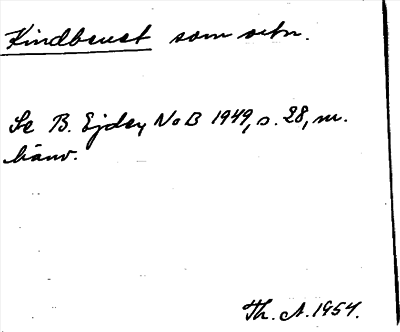 Kindbenet som ortn.
Se B. Ejder, NoB 1949, s. 28, m.
hänv.
Th. A. 1954.